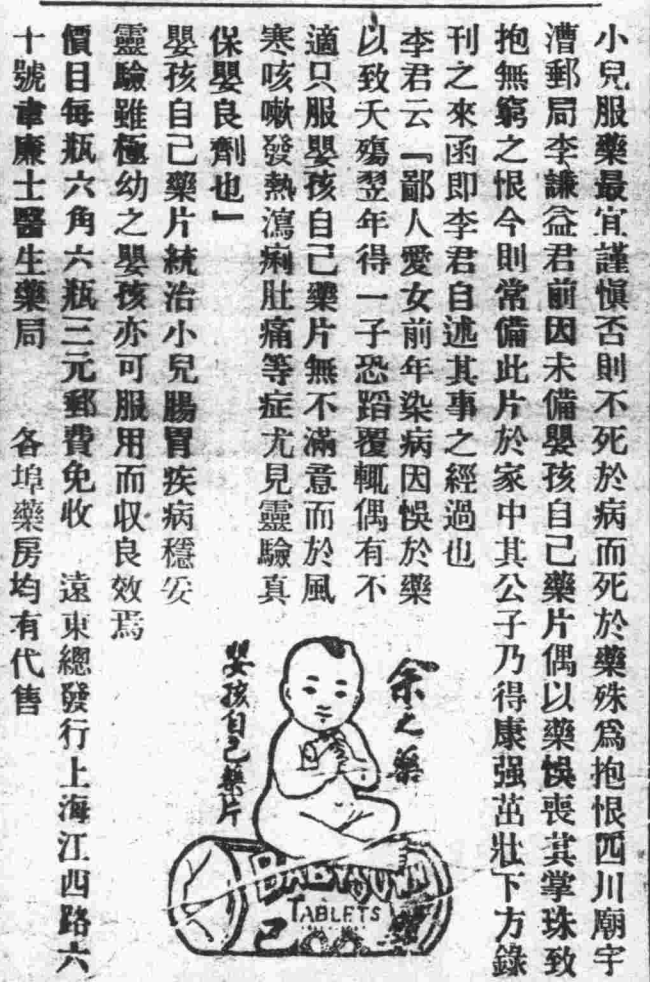 小兒服藥最宜謹愼否則不死於病而死於藥殊爲抱恨四川廟宇
漕郵局李謙益君前因未備嬰孩自己藥片偶以藥悞喪其掌珠致
抱無窮之恨今則常備此片於家中其公子乃得康强茁壯下方錄
刊之來函即李君自述其事之經過也
李君云「鄙人愛女前年染病因悞於藥
以致夭殤翌年得一子恐蹈覆輒偶有不
適只服嬰孩自己藥片無不滿意而於風
寒咳嗽發熱瀉痢肚痛等症尤見靈驗真
保嬰良劑也」
嬰孩自己藥片統治小兒腸胃疾病穩妥
靈驗雖極幼之嬰孩亦可服用而収良效焉
價目每瓶六角六瓶三元郵費免收　遠東總發行上海江西路六
十號韋廉士醫生藥局　各埠藥房均有代售
余之藥
嬰孩自己藥片
BABY'S OWN
TABLETS
己